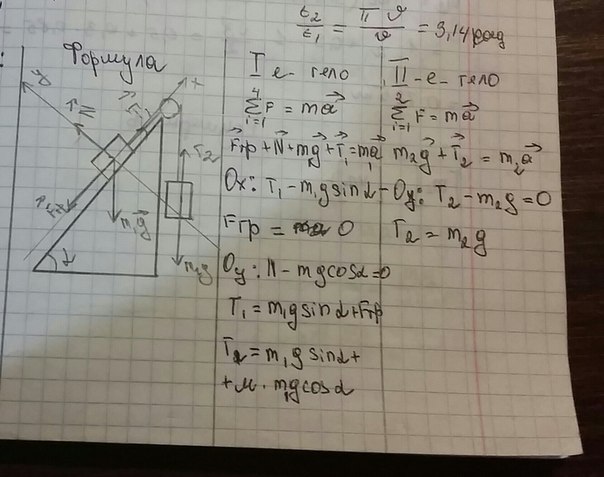 t₂/t₁ = πϑ/ϑ = 3,14 рад
Формула
y
x
N
T₁
T₂
Fтр
m₁g
m₂g
α
I е- тело
4 ∑ i=1 F = ma
Fтр + N + mg + T₁ = ma₁
Ox: T₁ - m₁g sinα -
Fтр = 0
Oy: N - mg cosα = 0
T₁ = m₁g sinα + Fтр
T₂ = m₁g sinα +
+ μ · m₁g cosα
II - е- тело
2 ∑ i=1 F = ma
m₂g + T₂ = m₂a
Oy: T₂ - m₂g = 0
T₂ = m₂g